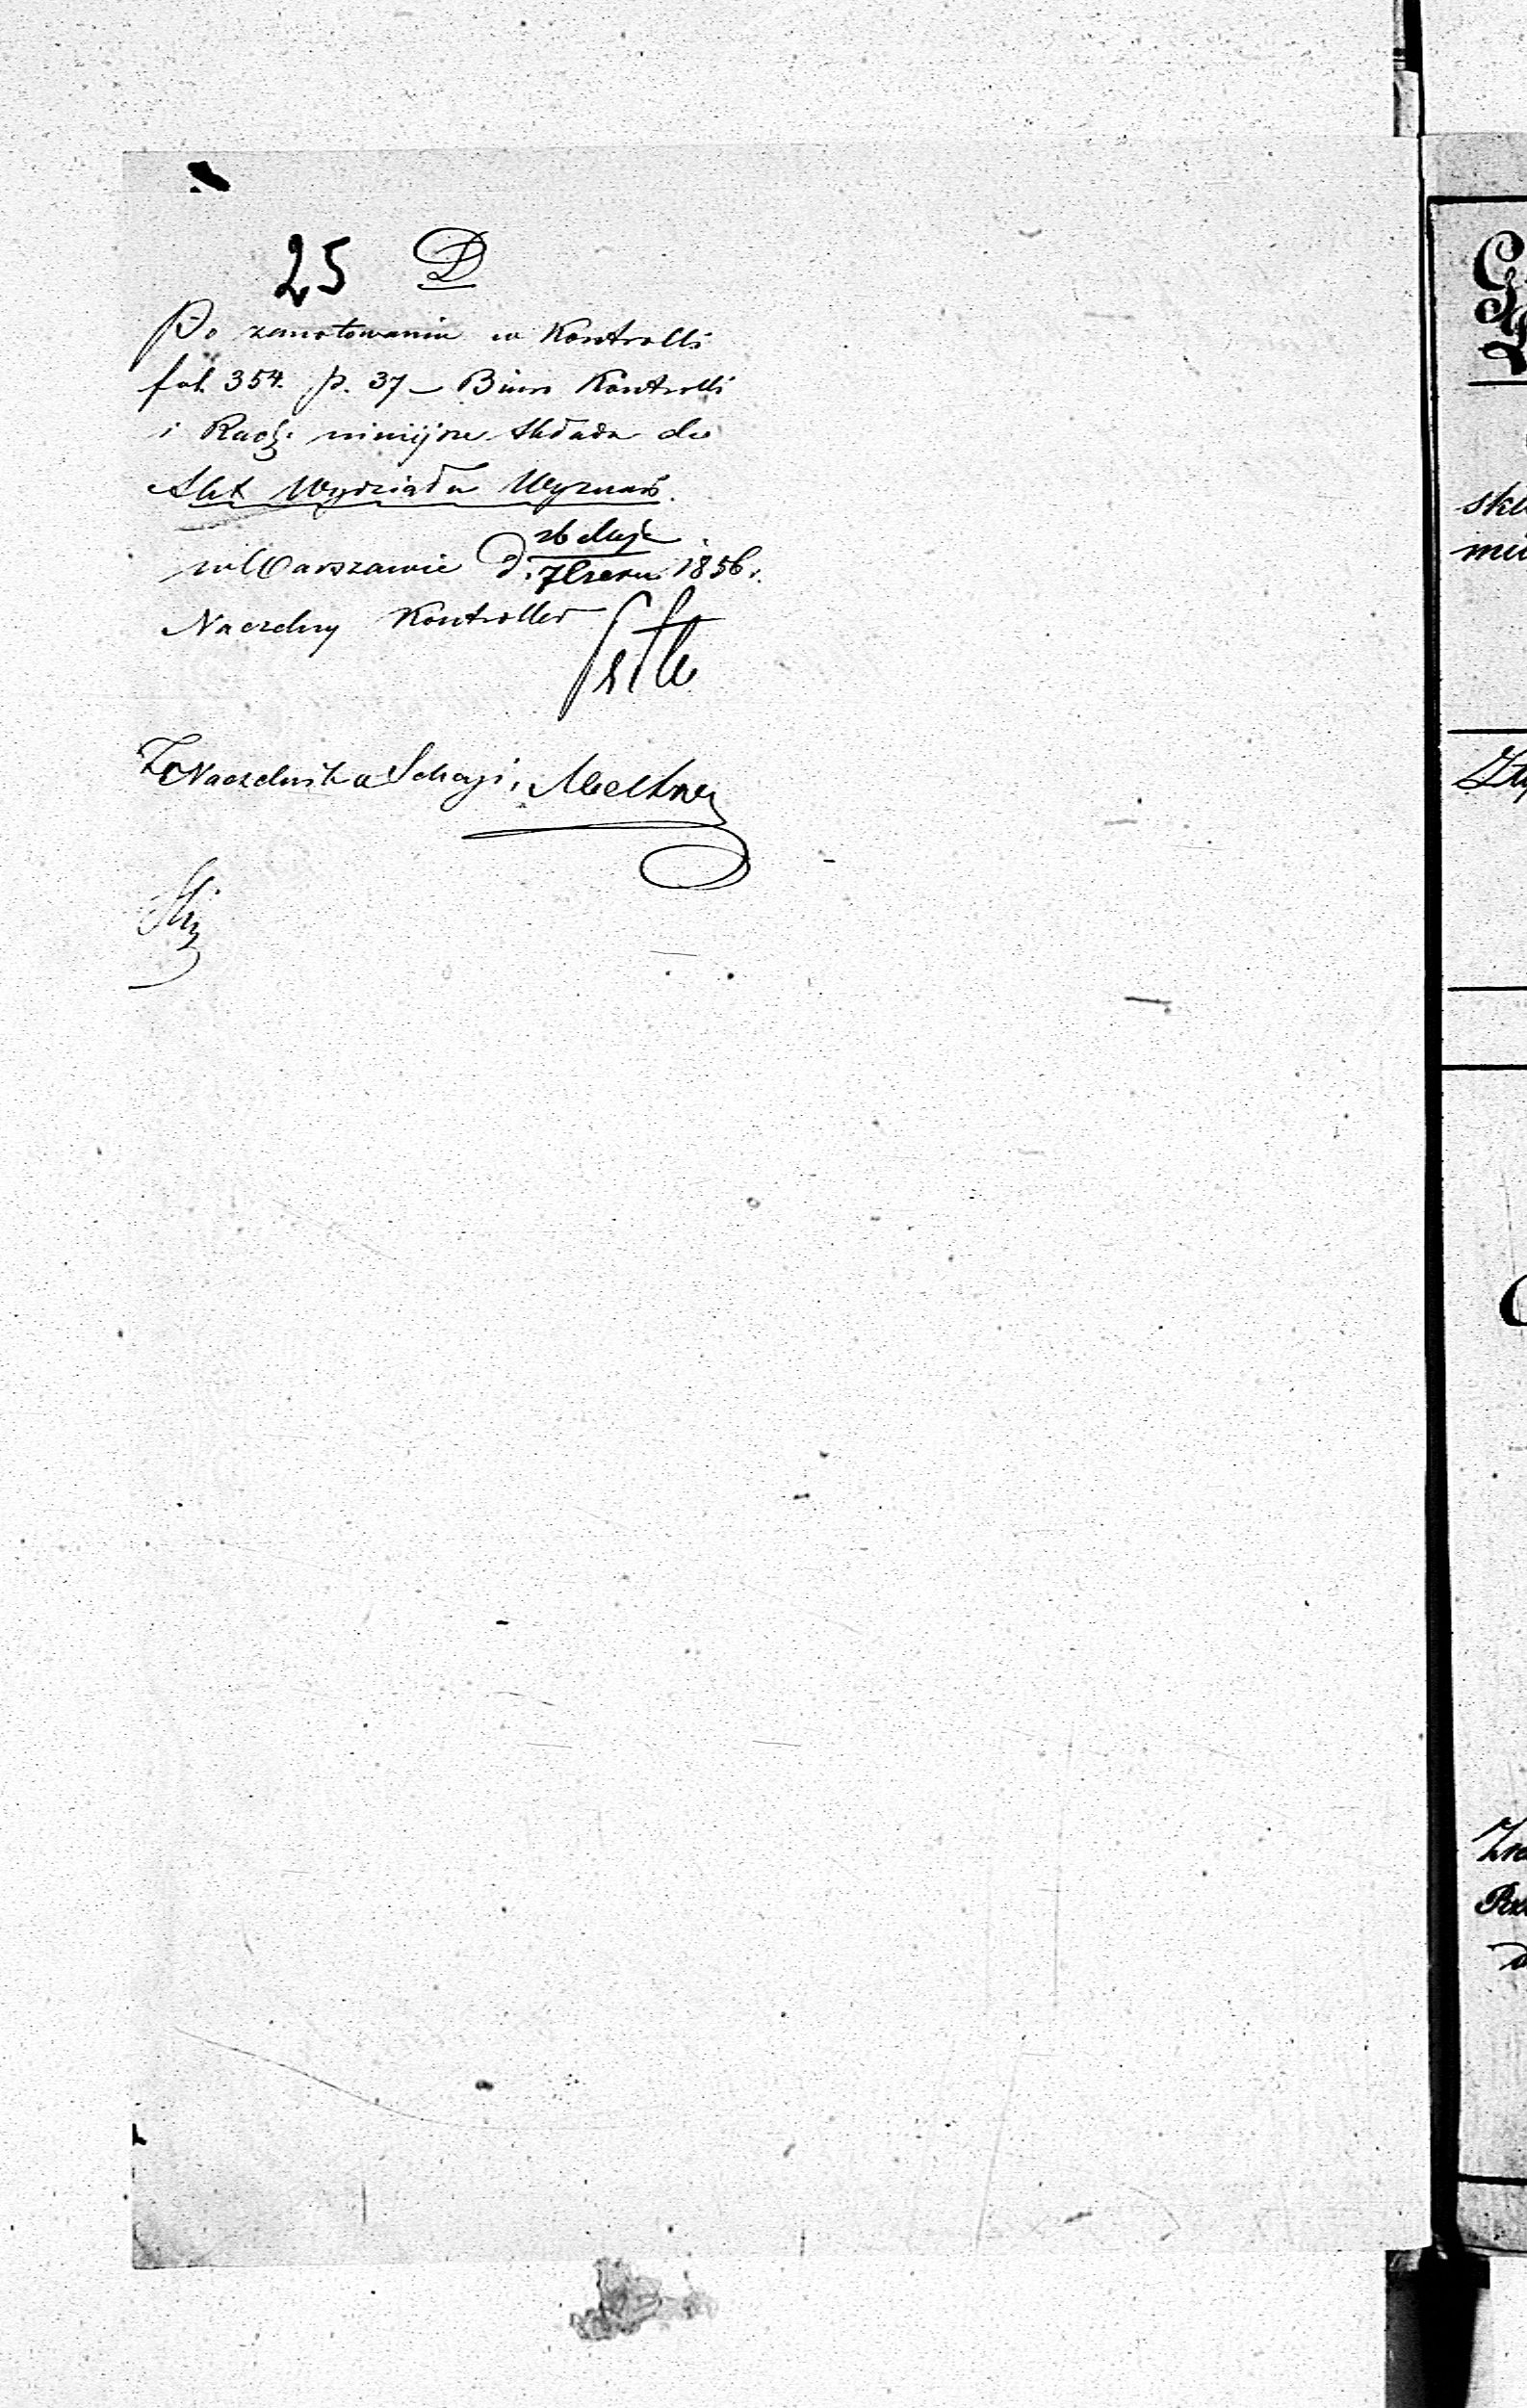 25 D
Po zanotowaniu w Kontrolli
fol. 354. p. 37 – Biuro Kontrolli
i Rach: niniejsze składa do
Akt Wydziału Wyznań.
w Warszawie d. 26 Maja
7 Czerw: 1856 r.
Naczelny Kontroller
Z. Naczelnika Sekcyi,